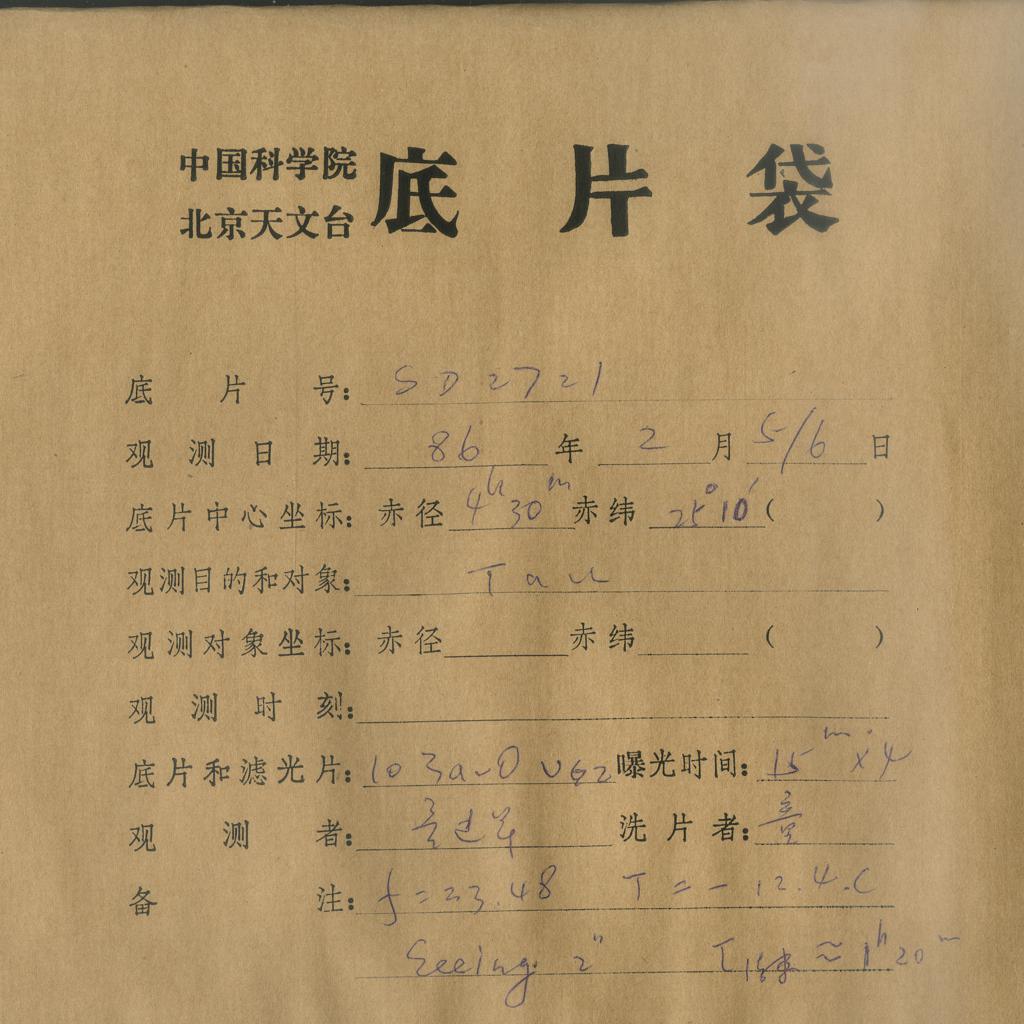 中国科学院
北京天文台
底片袋
底片号: SD2721
观测日期: 86年2月5/6日
底片中心坐标: 赤径 4h30m 赤纬 25°10′ ( )
观测目的和对象: Tau
观测对象坐标: 赤径 赤纬 ( )
观测时刻:
底片和滤光片: 103a-O UG2 曝光时间: 15m×4
观测者: 洗片者:
备注: f=23.48 T=-12.4.C
Seeing 2" ≈1h20m